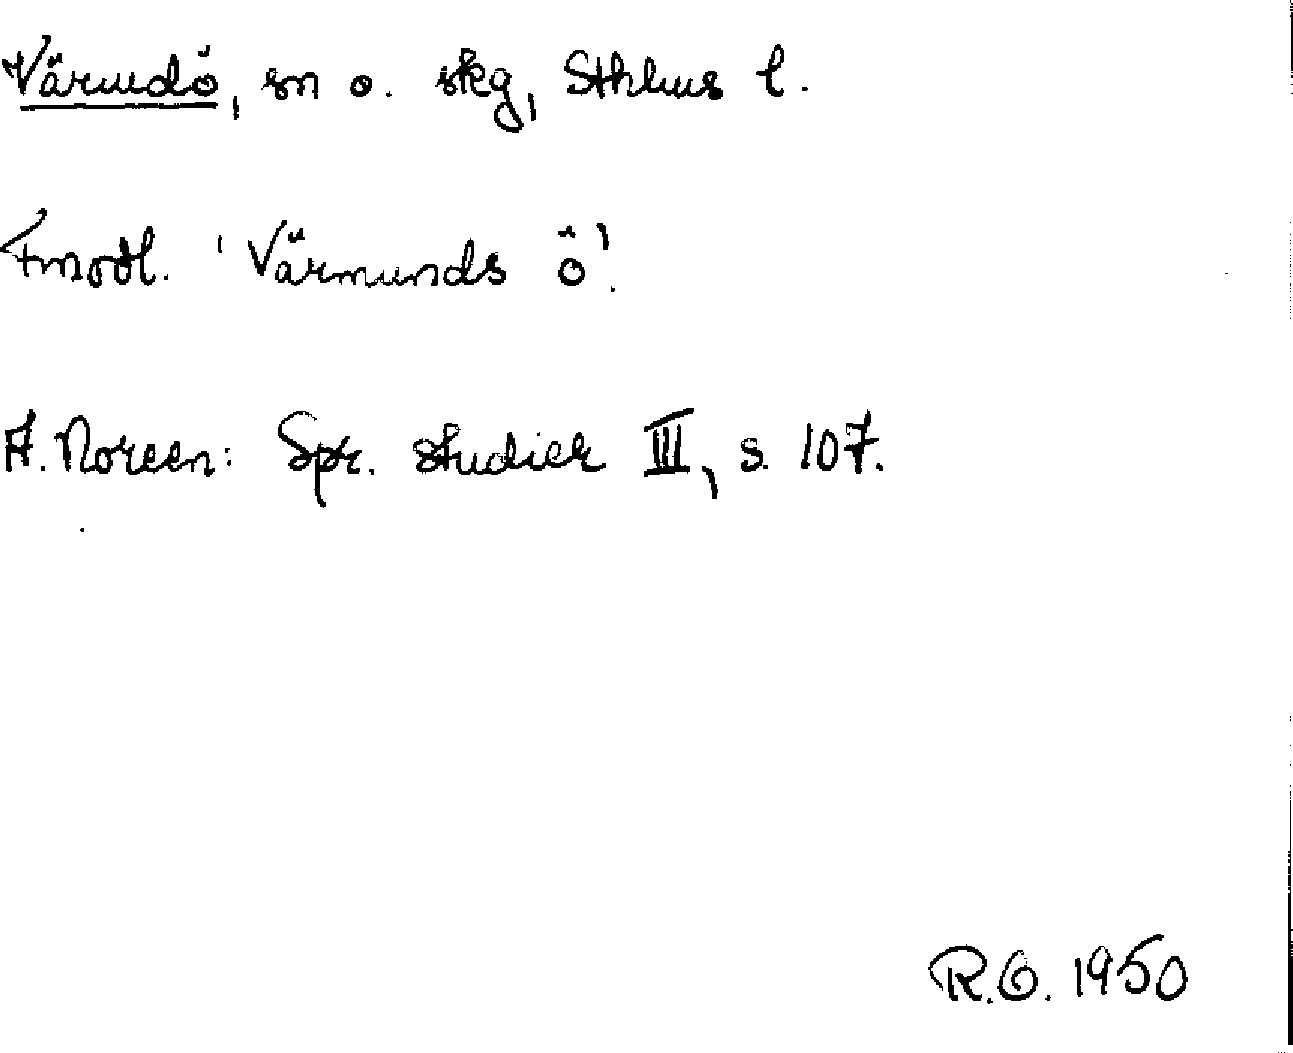 Värmdö, sn o. skg, Sthlms l.
Fmodl. 'Värmunds ö'.
A. Noreen: Spr. studier III, s. 107.
R.O. 1950